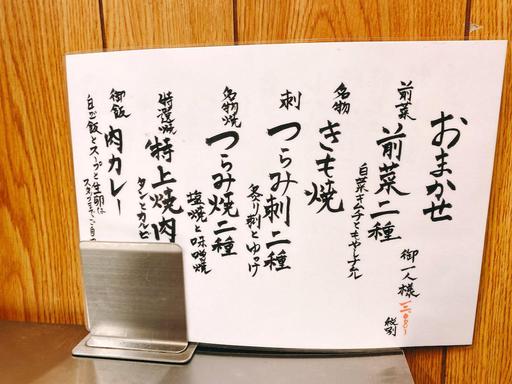 おまかせ
御一人様
税別
前菜
前菜二種
白菜キムチともやしナムル
名物
きも焼
刺
つらみ刺二種
炙り刺とゆっけ
名物焼
つらみ焼二種
塩焼と味噌焼
特選焼
特上焼肉
タンとカルビ
御飯
肉カレー
白ご飯とスープと生卵は